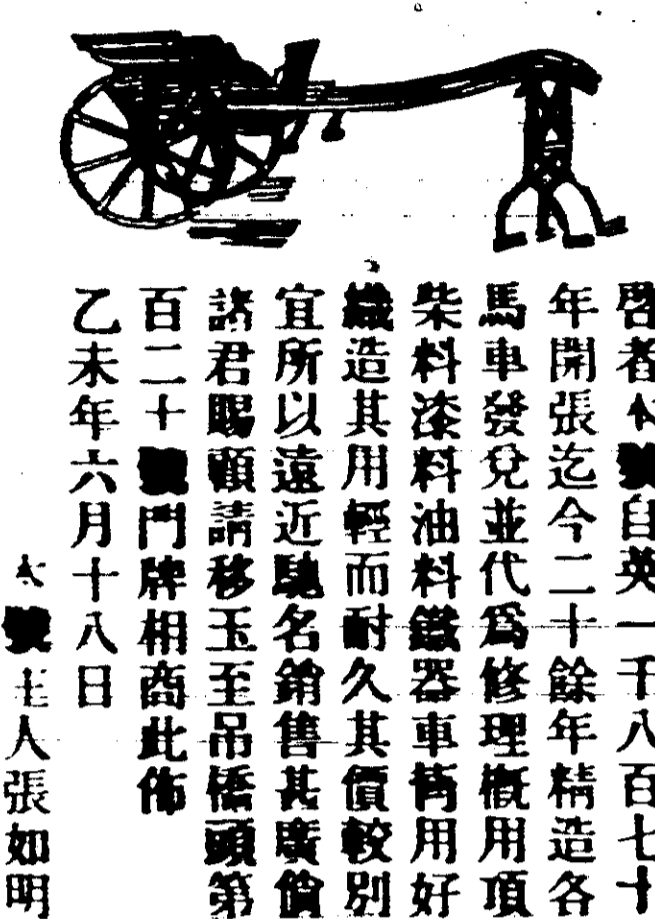 啓者本號自英一千八百七十
年開張迄今二十餘年精造各
馬車發兌並代爲修理槪用頂
柴料漆料油料鐵器車用好
織造其用輕而耐久其價較別
宜所以遠近馳名銷售甚廣倘
諸君賜顧請移玉至吊橋頭第
百二十號門牌相商此佈
乙未年六月十八日
本號主人張如明